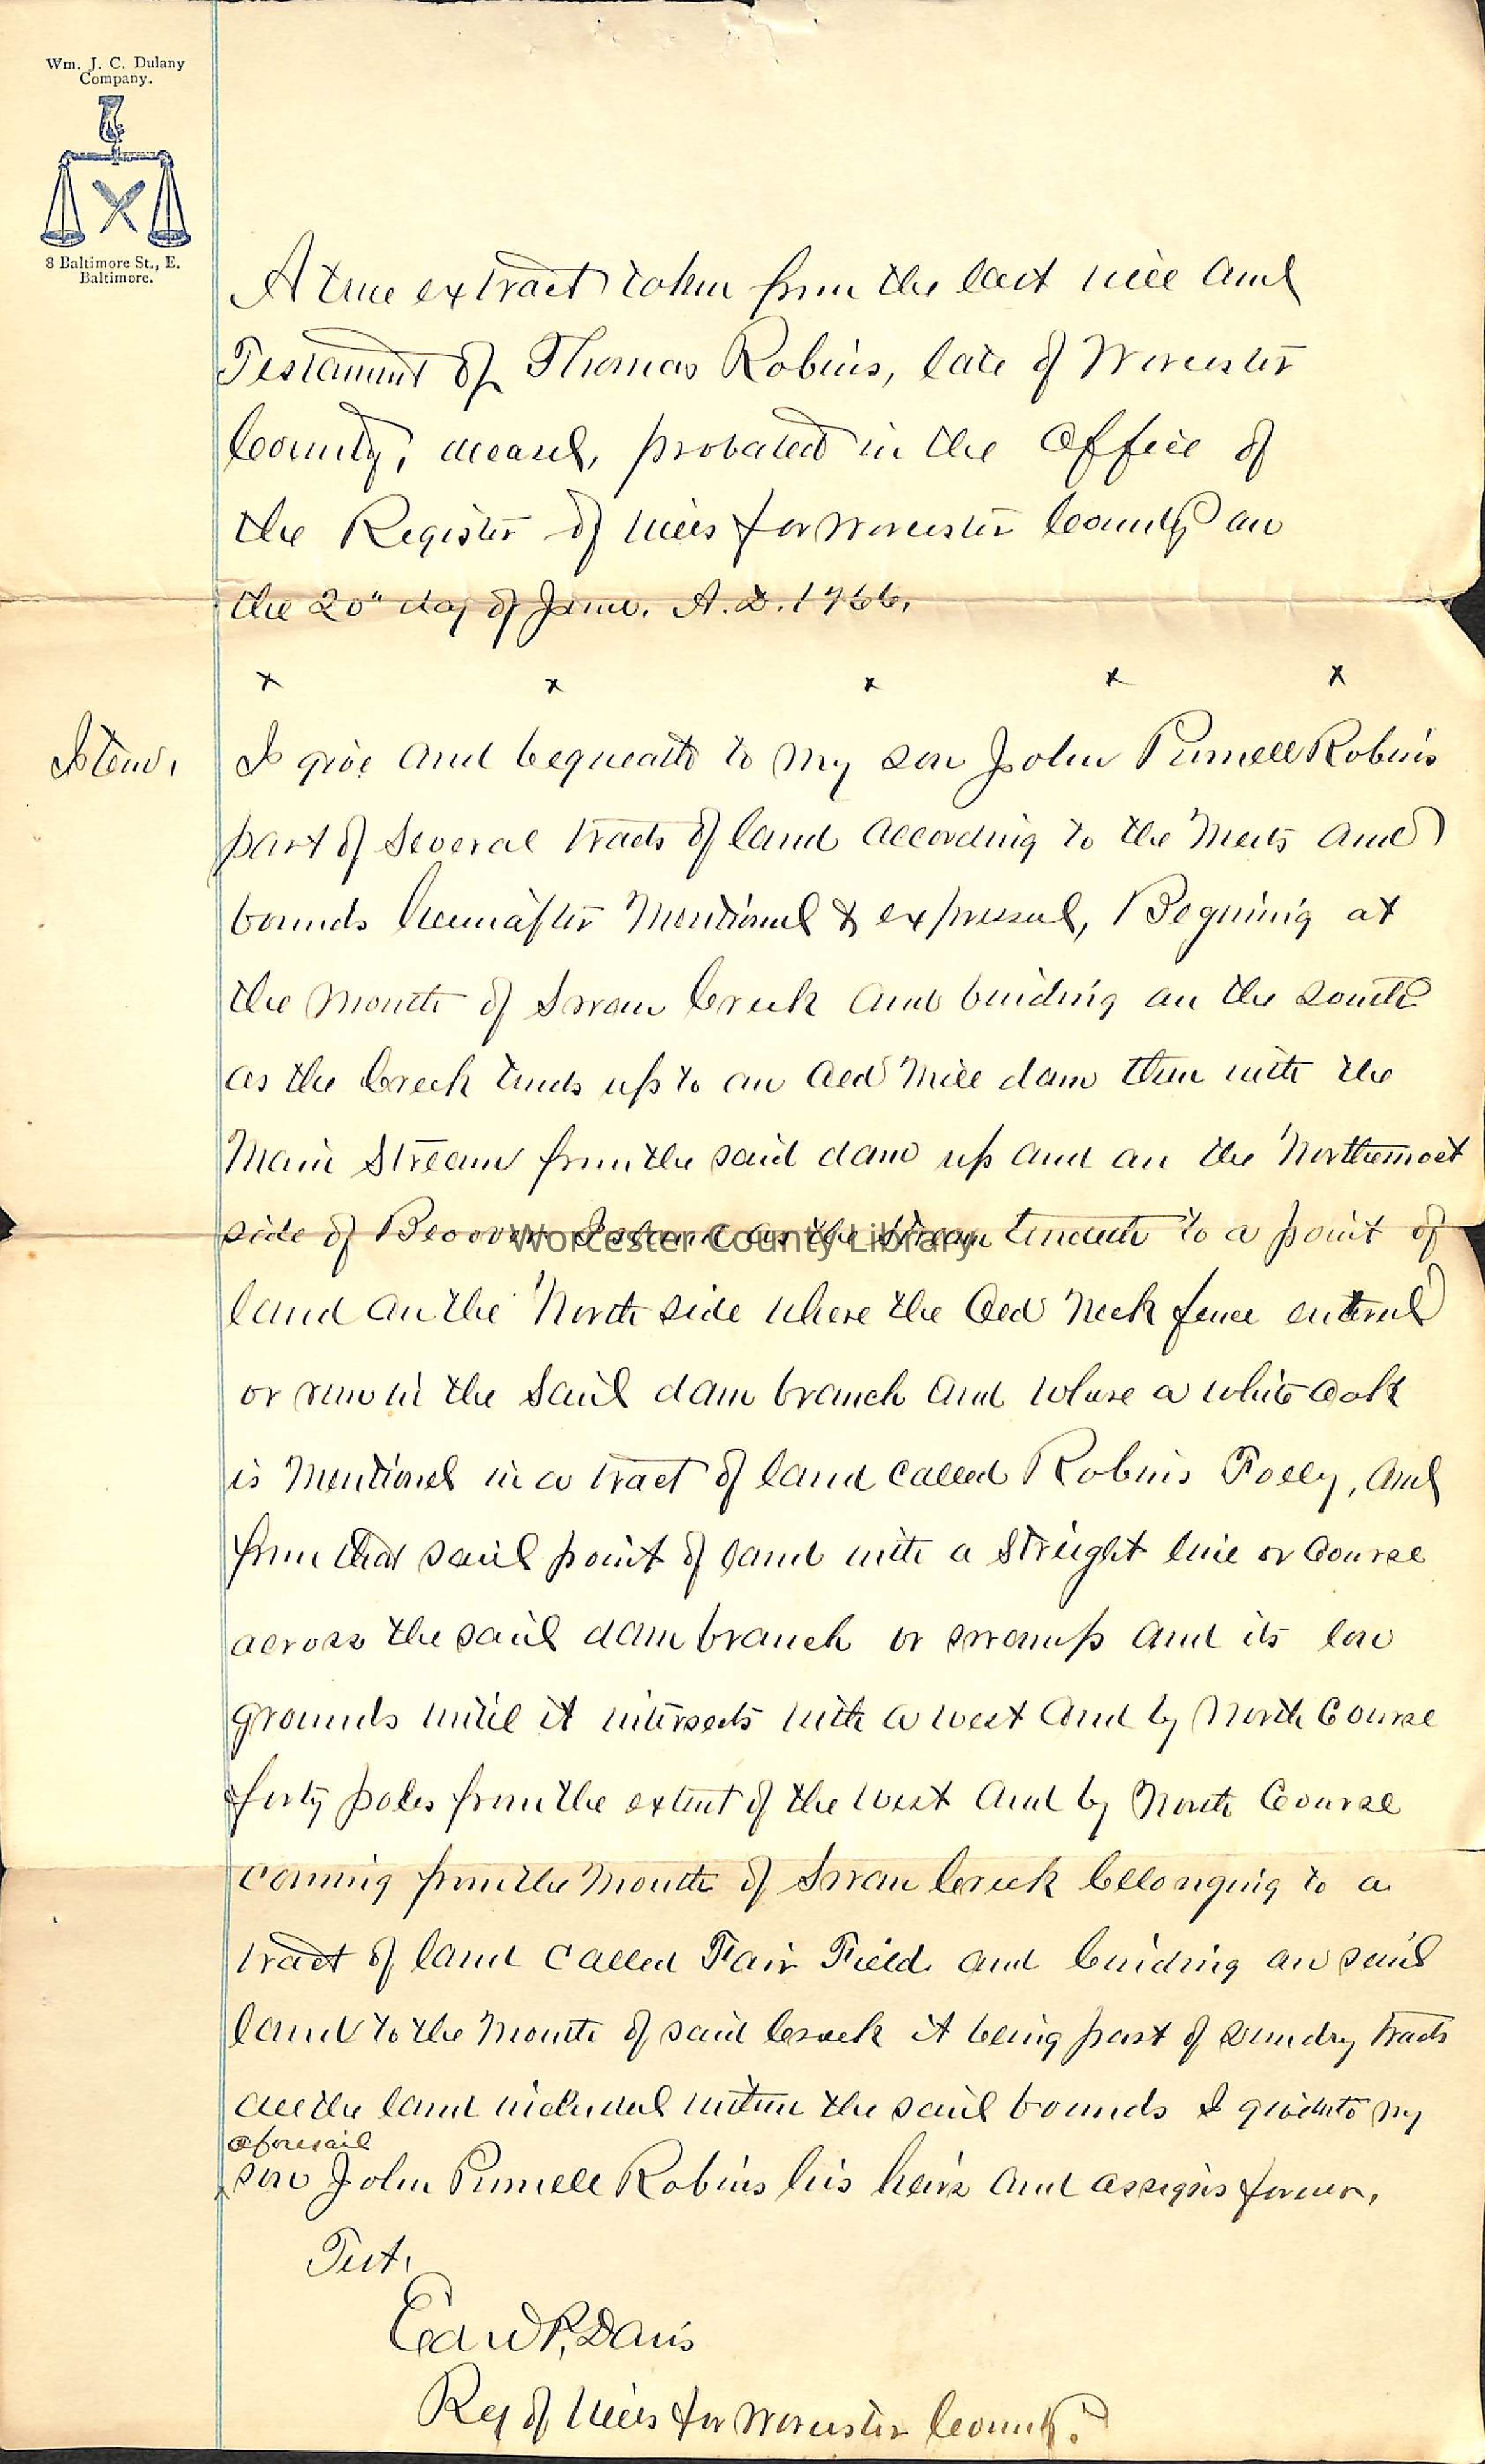 Wm. J. C. Dulany
Company.
8 Baltimore St., E.
Baltimore.
A true extract taken from the last will and
Testament of Thomas Robins, late of Worcester
County, deceased, probated in the Office of
the Register of Wills for Worcester County on
the 20" day of June. A.D. 1766.
x x x x x
Item. I give and bequeath to my son John Purnell Robins
part of several tracts of land according to the Meets and
bounds hereinafter Mentioned & expressed, Begining at
the Mouth of Swan Creek and binding on the south
as the Creek tends up to an old Mill dam then with the
Main Stream from the said dam up and on the Northernmost
side of Beaver Island as the stream tendeth to a point of
land on the North side where the Old Neck fence entered
or run in the said dam branch and where a white oak
is Mentioned in a tract of land called Robins Folly, and
from that said point of land with a streight line or Course
across the said dam branch or swamp and its low
grounds until it intersects with a west and by North Course
forty poles from the extent of the West and by North Course
coming from the Mouth of Swan Creek belonging to a
tract of land called Fair Field and binding on said
land to the Mouth of said Creek it being part of sundry tracts
all the land included within the said bounds I give unto my
aforesaid
son John Purnell Robins his heirs and assigns forever.
Test.
Edw P. Davis
Reg of Wills for Worcester County.
Worcester County Library